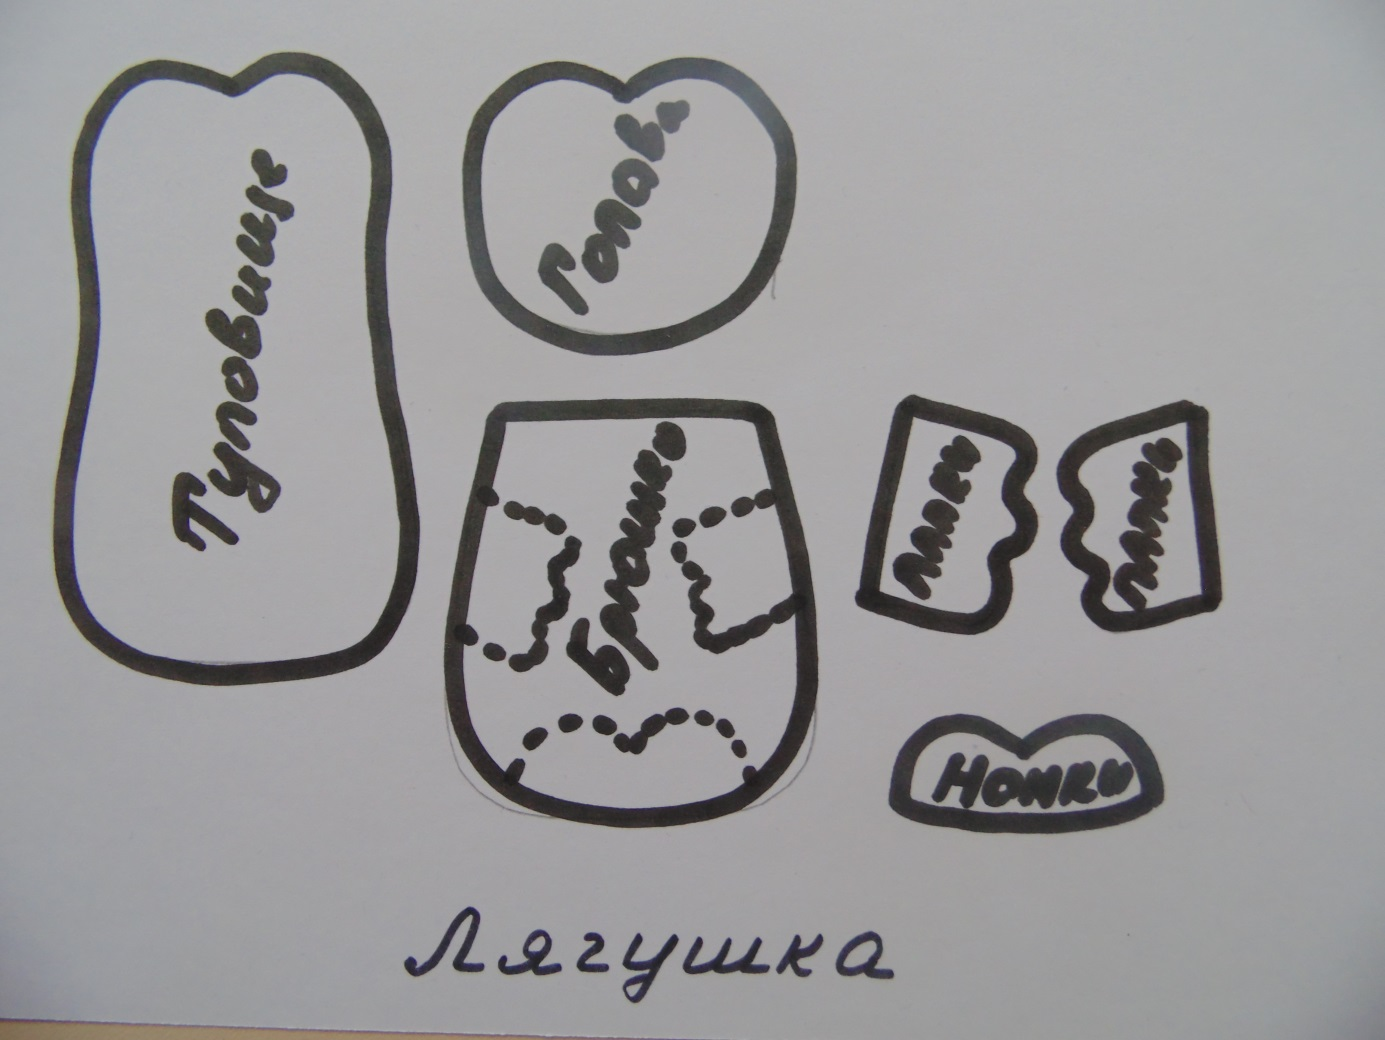 Туловище
Голова
Брюшко
Лапки
Лапки
Ножки
Лягушка